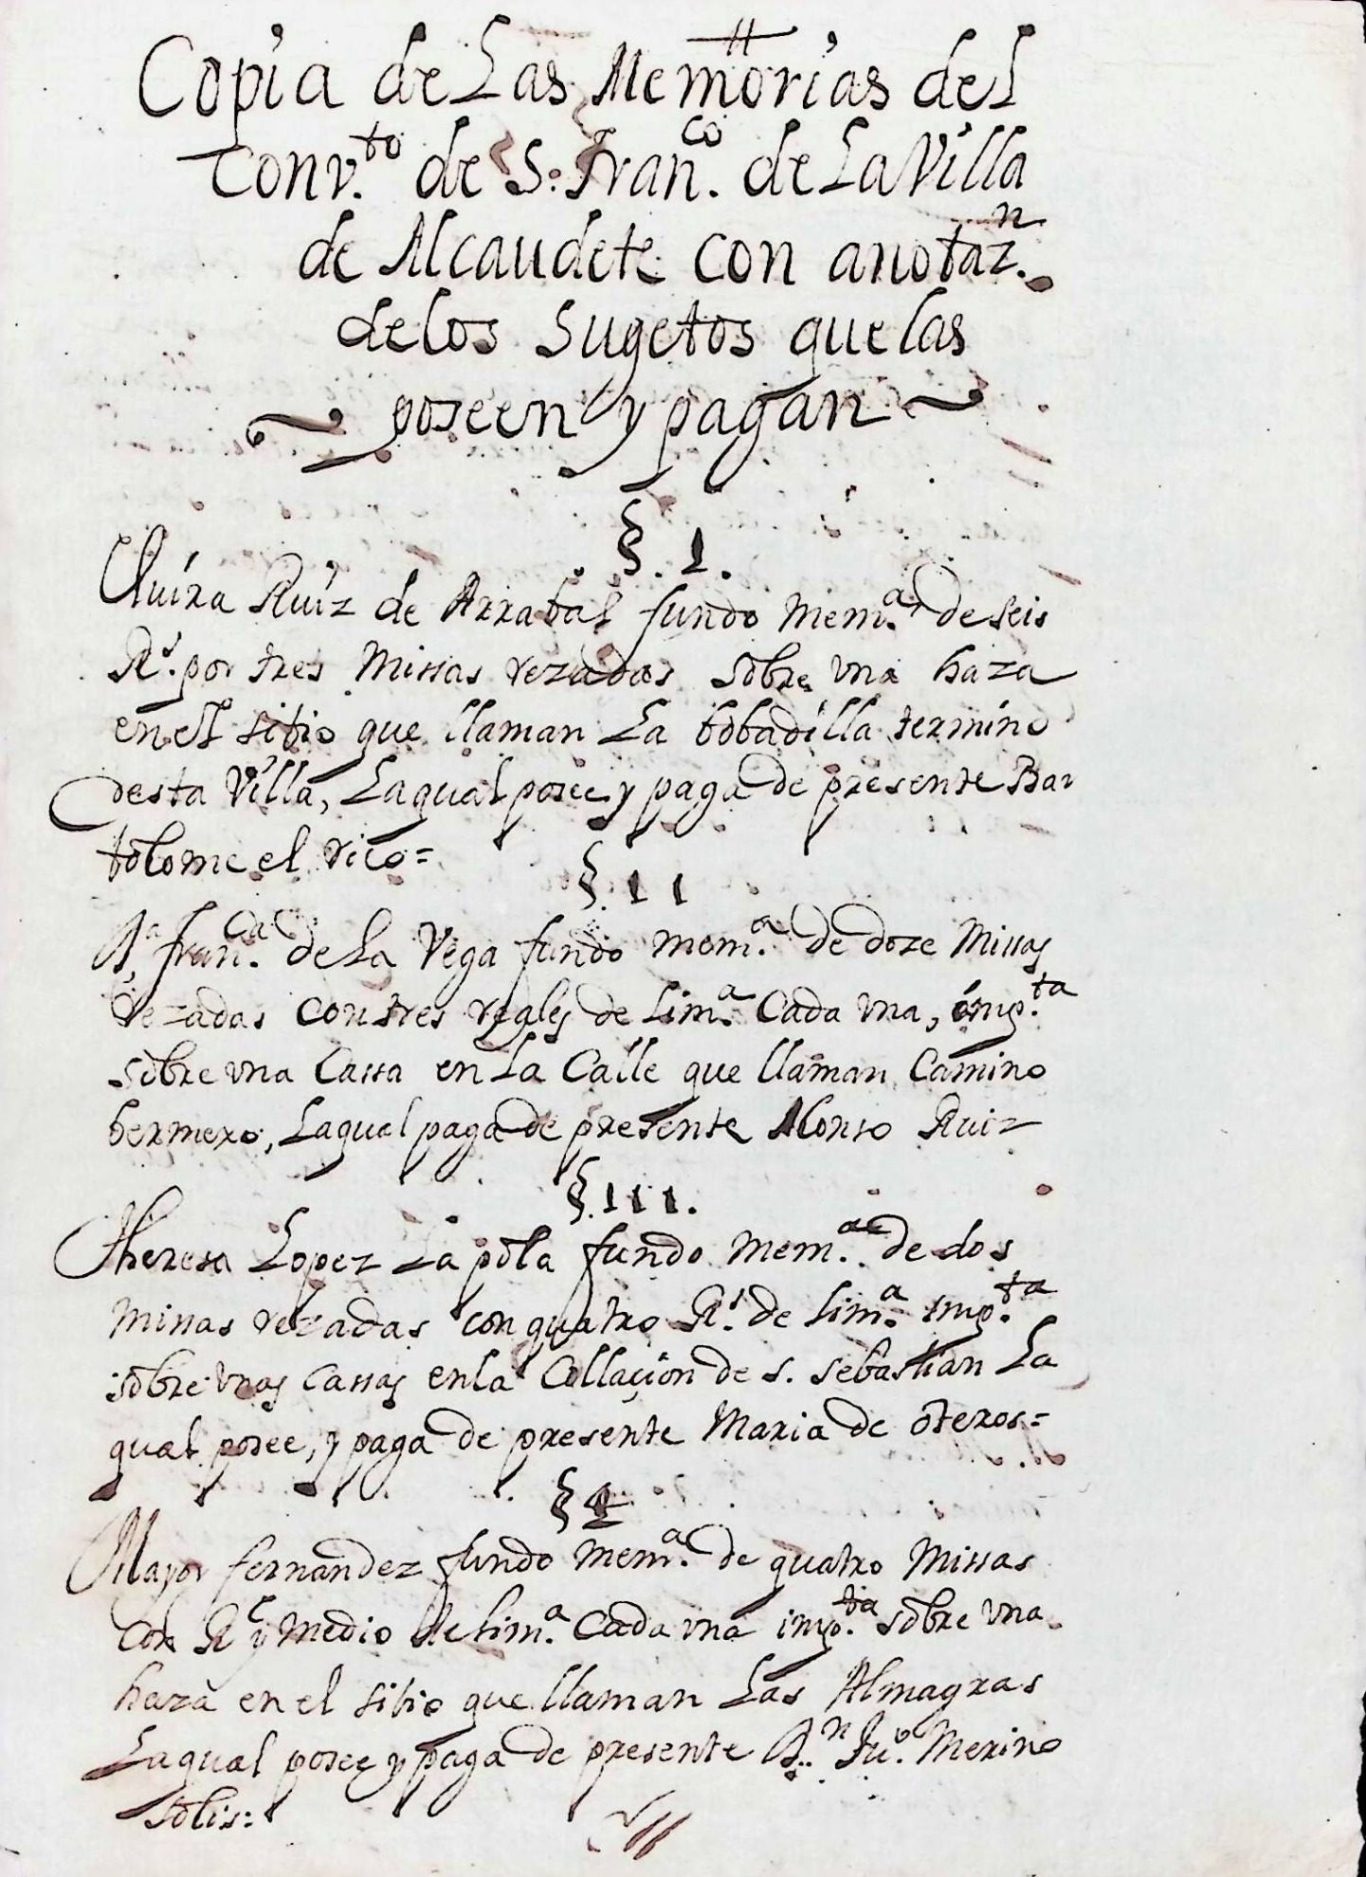 Copia de Las Memorias del
Conv.to de S. Fran.co de La Villa
de Alcaudete con anotaz.n
de los Sugetos que las
poseen y pagan
§. 1.
Eluira Ruiz de Arrabal fundo Mem.a de seis
Rs. por tres Missas rezadas sobre vna haza
en el sitio que llaman La bobadilla termino
desta Villa, Laqual posee y paga de presente Bar
tolome el rico=
§. 11
D.a Fran.ca de La Vega fundo mem.a de doze Missas
rezadas con tres reales de Lim.a Cada vna, imp.ta
sobre vna Cassa en La Calle que llaman Camino
bermexo, Laqual paga de presente Alonso Ruiz
§. 111.
Theresa Lopez La pola fundo Mem.a de dos
Missas rezadas con quatro Rs. de Lim.a imp.ta
sobre vnas Cassas en la Collaçion de s. sebastian La
qual posee, y paga de presente Maria de oteros=
§ 4
Mayor fernandez fundo Mem.a de quatro Missas
Con Rl y Medio de Lim.a Cada vna imp.ta sobre vna
haza en el sitio que llaman Las Almagras
Laqual posee y paga de presente D.n Ju.o Merino
solis: